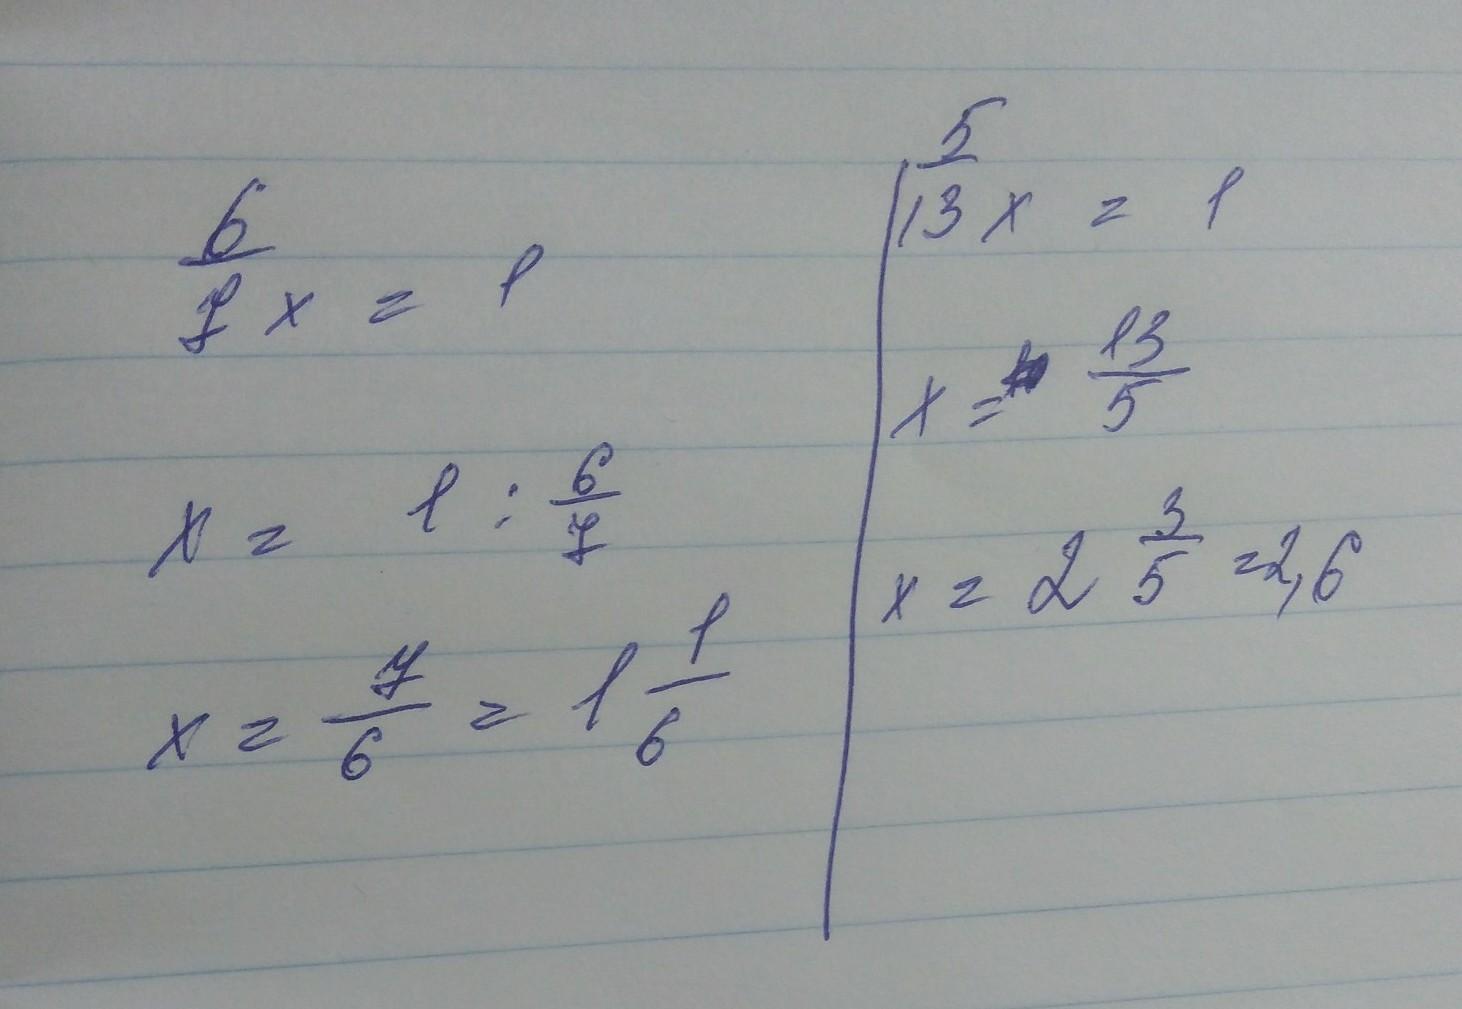 6/7 x = 1
x = 1 : 6/7
x = 7/6 = 1 1/6
5/13 x = 1
x = 13/5
x = 2 3/5 = 2,6